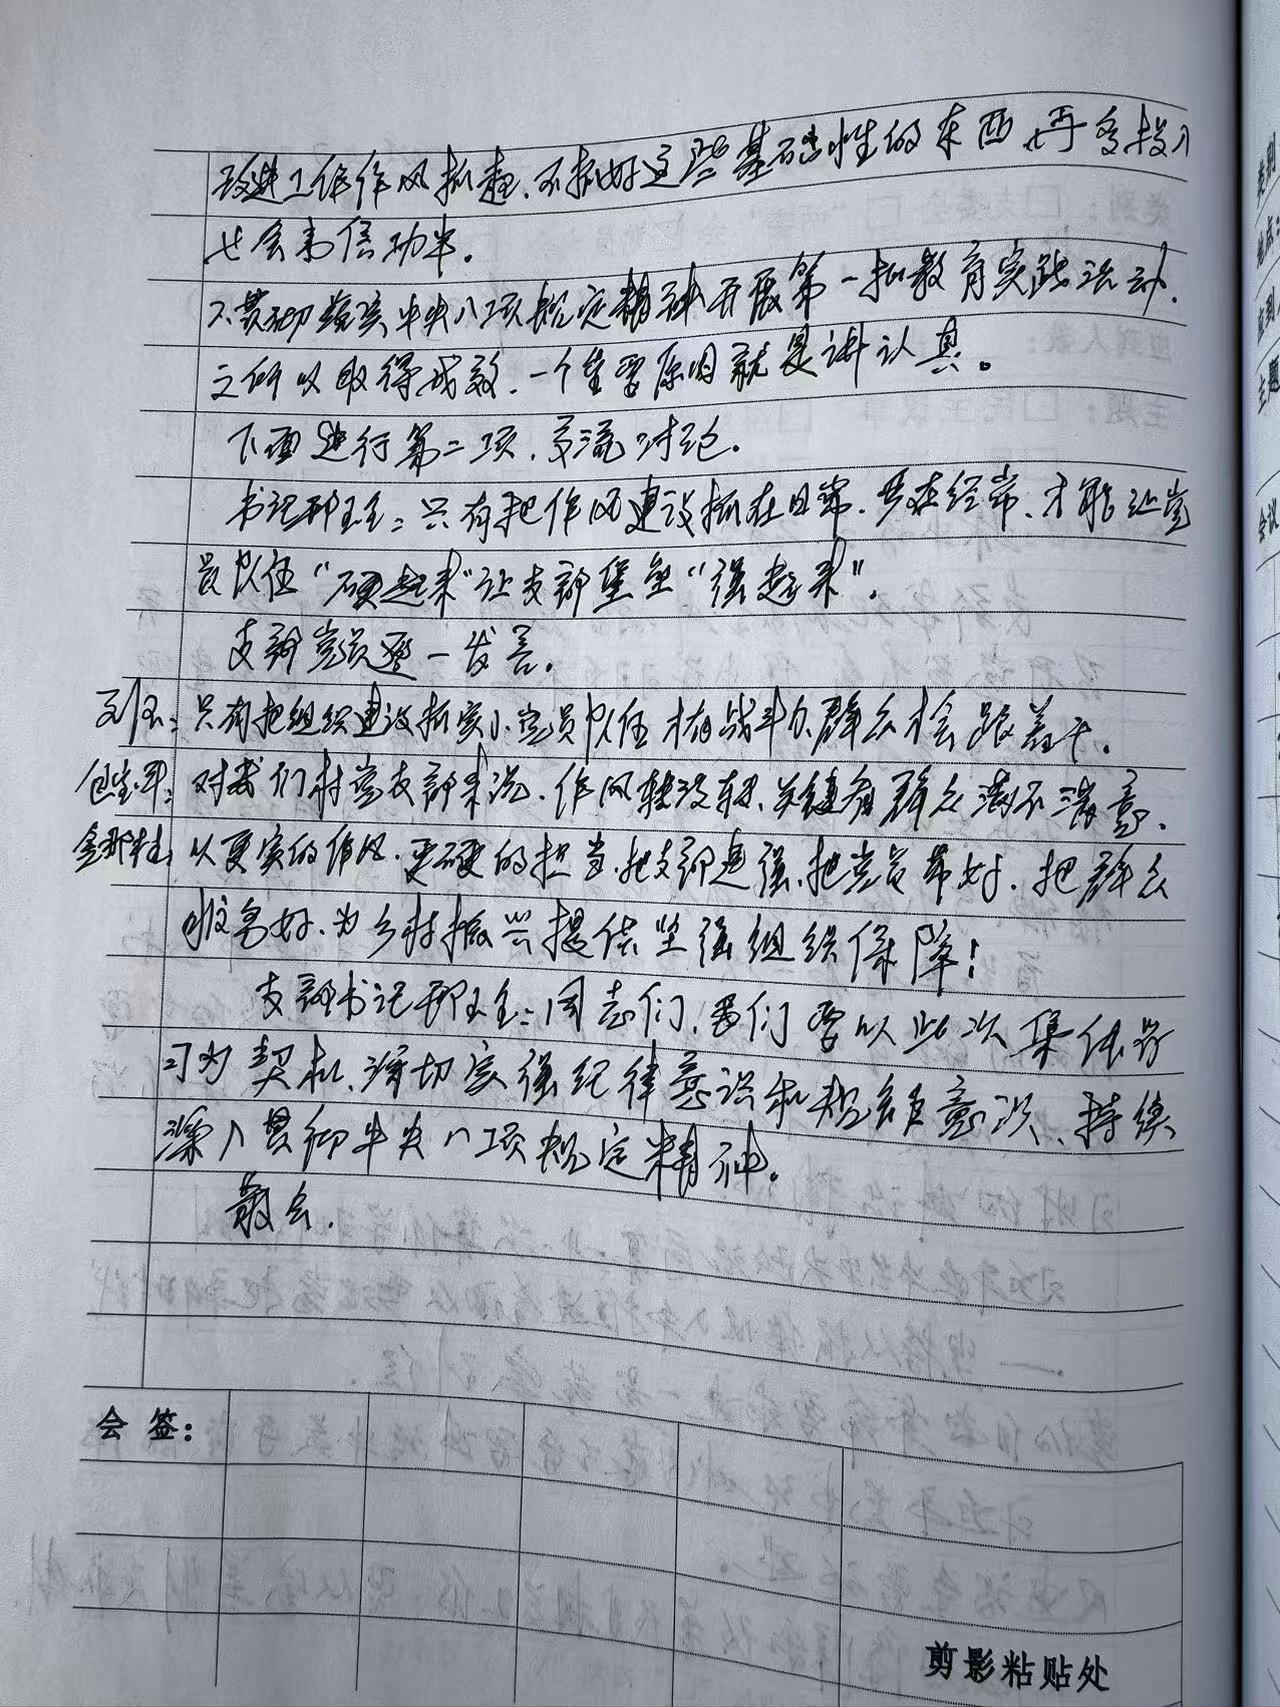 改进工作作风抓起、不抓好这些基础性的东西,再多投入
也会事倍功半。
2、贯彻落实中央八项规定精神开展第一批教育实践活动、
之所以取得成效、一个重要原因就是讲认真。
下面进行第二项、交流讨论。
书记邢玉全:只有把作风建设抓在日常、严在经常、才能让党
员队伍“硬起来”让支部堡垒“强起来”。
支部党员逐一发言。
只有把组织建设抓实了、党员队伍才有战斗力、群众才会跟着干。
对我们村党支部来说、作风转没转、关键看群众满不满意、
以更实的作风、更硬的担当、把支部建强、把党员带好、把群众
服务好、为乡村振兴提供坚强组织保障!
支部书记邢玉全:同志们,我们要以此次集体学
习为契机、 切实强纪律意识和规矩意识、持续
深入贯彻中央八项规定精神。
散会.
会 签:
剪影粘贴处
类别
地点:
应到
主题
会议